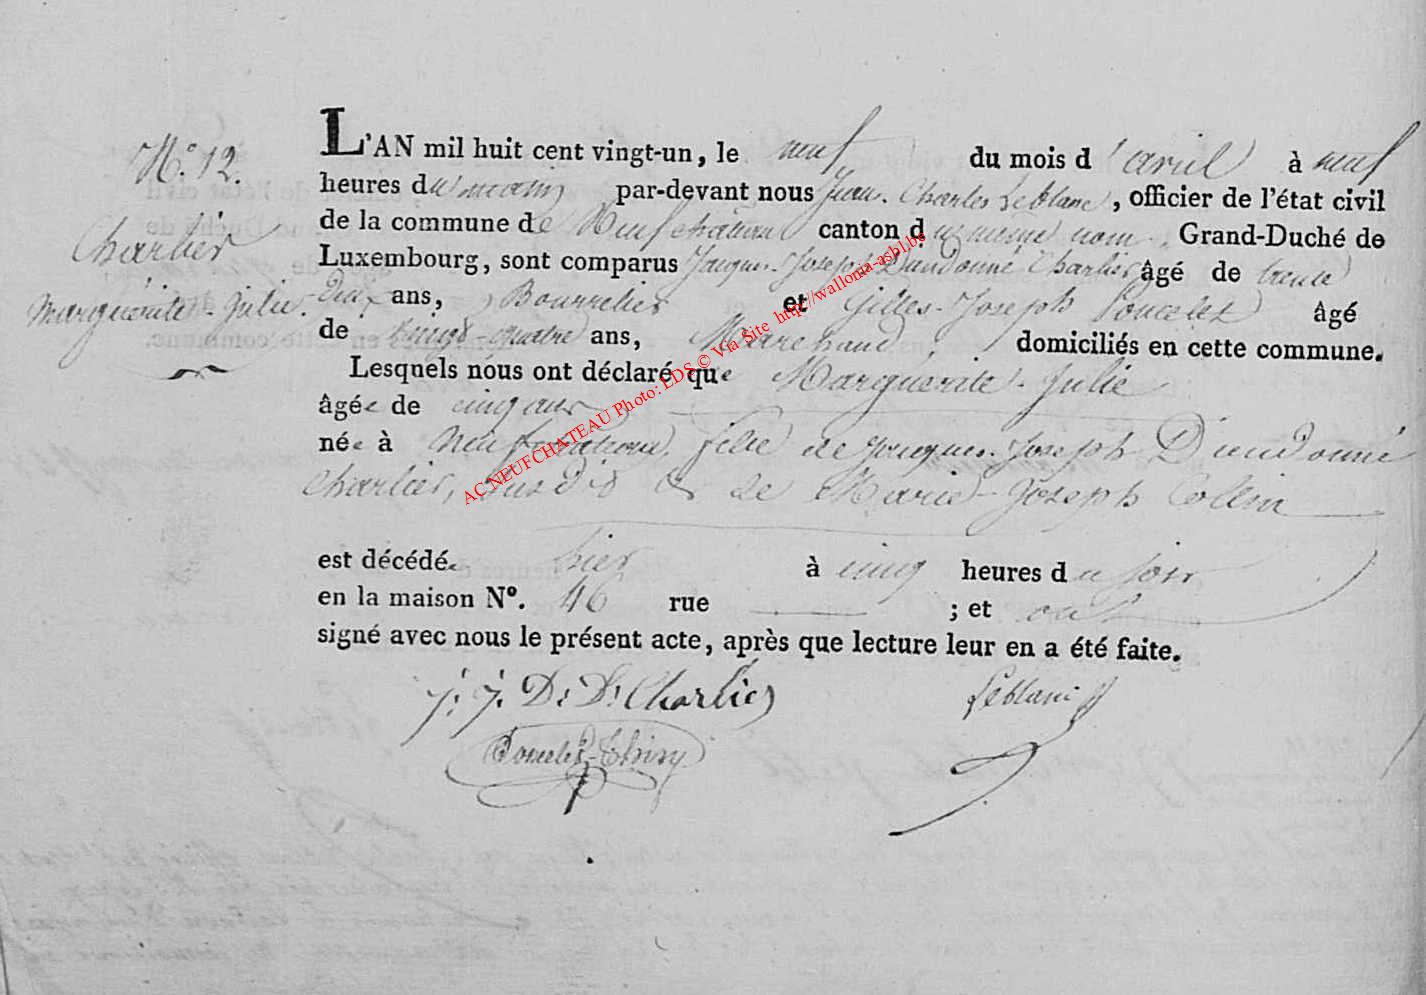 N.º 12.
Charlier
Marguerite-Julie.
L'AN mil huit cent vingt-un, le neuf du mois d'avril à neuf
heures du matin par-devant nous Jean-Charles Leblanc, officier de l'état civil
de la commune de Neufchâteau canton du même nom, Grand-Duché de
Luxembourg, sont comparus Jacques-Joseph Dieudonné Charlier âgé de trente
deux ans, Bourrelier et Gilles-Joseph Poncelet âgé
de vingt-quatre ans, Marchand, domiciliés en cette commune.
Lesquels nous ont déclaré que Marguerite-Julie
âgée de cinq ans
née à Neufchâteau, fille de Jacques-Joseph Dieudonné
Charlier, susdit & de Marie-Joseph Collin
est décédée hier à cinq heures du soir
en la maison Nº. 46 rue ; et ont
signé avec nous le présent acte, après que lecture leur en a été faite.
J. J. D. D. Charlier Leblanc
Poncelet-Thiry
AC NEUFCHATEAU Photo: LDS © Via Site http://wallonia-asbl.be